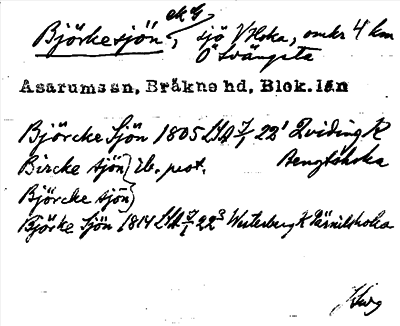 Björkesjön, sjö V Hoka, omkr 4 km
O Svängsta
Asarums sn, Bräkne hd, Blek. län
Björcke Sjön 1805 LSA 7/1 22¹ Qviding K
Bircke sjön } Ib. prot. Bengtshoka
Björcke sjön }
Björke Sjön 1814 LSA 7/1 22³ Westerberg K Pärnilshoka